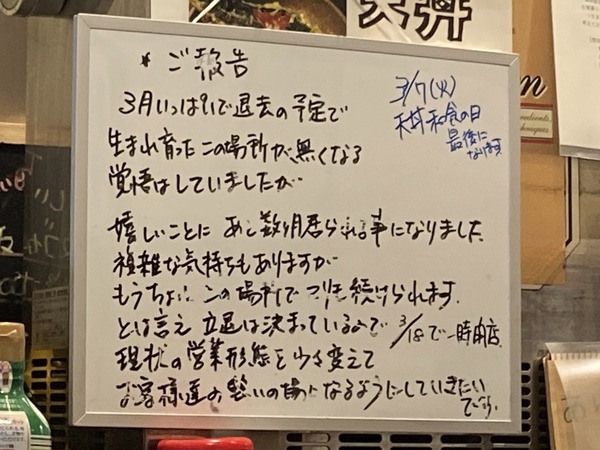 天丼
* ご報告
3月いっぱいで退去の予定で
生まれ育ったこの場所が無くなる
覚悟はしていましたが
嬉しいことに あと数ヶ月居られる事になりました
複雑な気持ちもありますが
もうちょいこの場所でつりを続けられます.
とは言え 立退は決まっているので 3/18で一時閉店
現状の営業形態を少々変えて
お客様達の憩いの場になるようにしていきたい
です.
3/7(火)
天丼和食の日
最後に
なります